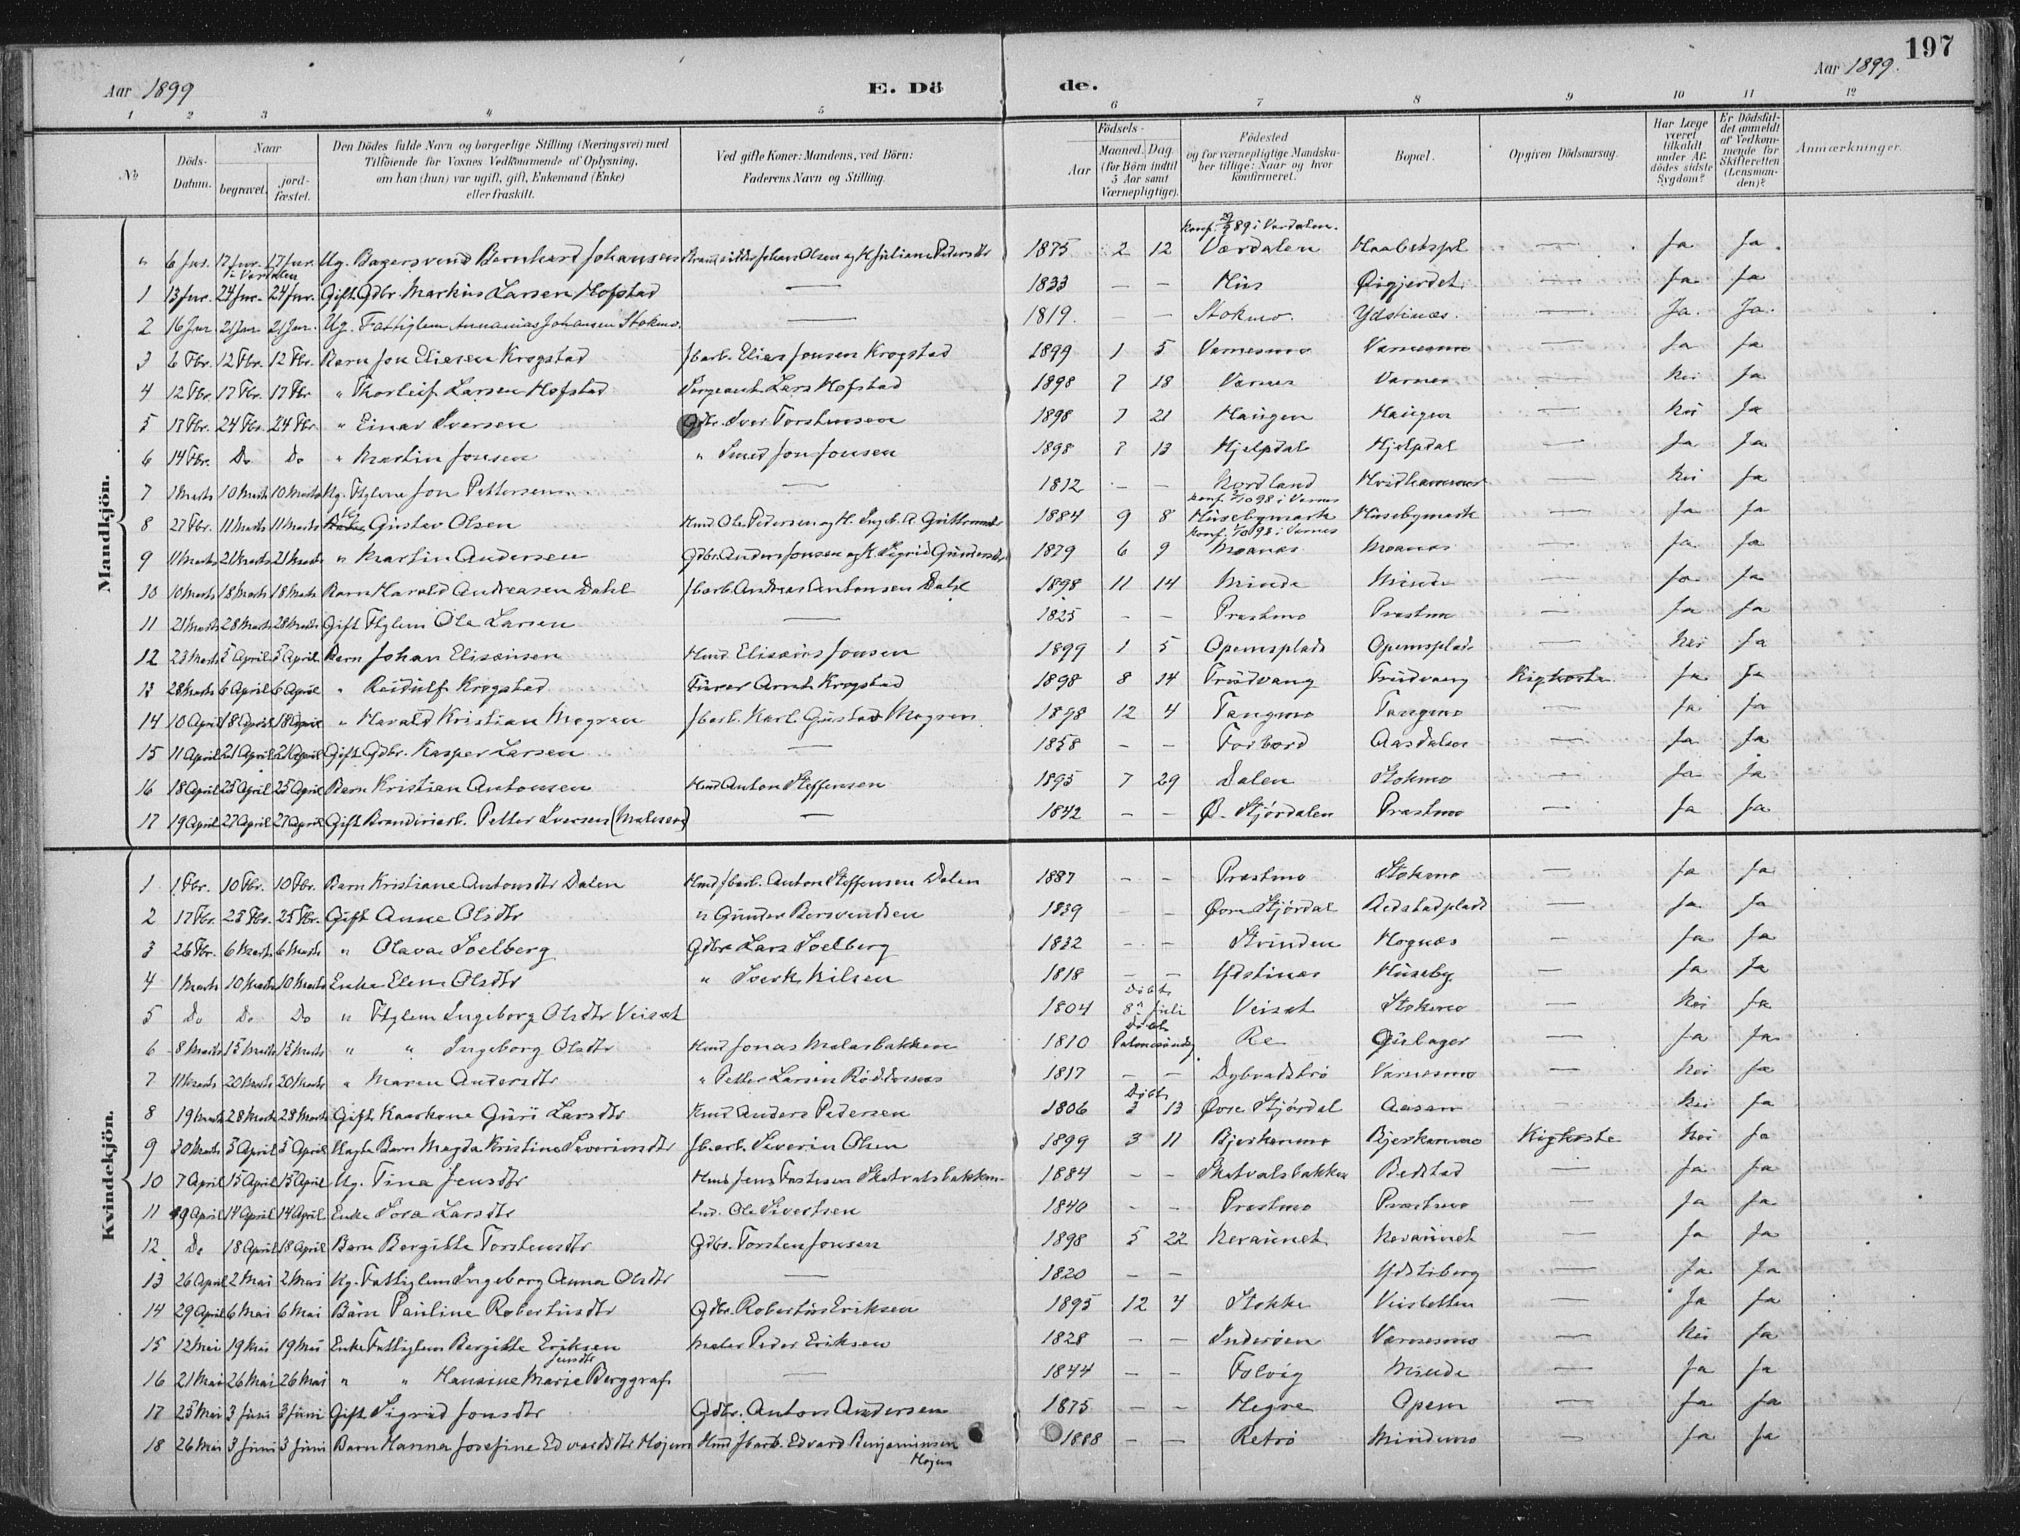 197
Aar 1899
E. Dö
de.
Aar 1899.
1 2 3 4 5 6 7 8 9 10 11 12
No
Döds-Datum.
Naar
begravet.
jord-fæstet.
Den Dödes fulde Navn og borgerlige Stilling (Næringsvei) med Tilföiende for Voxnes Vedkommende af Oplysning, om han (hun) var ugift, gift, Enkemand (Enke) eller fraskilt.
Ved gifte Koner: Mandens, ved Börn: Faderens Navn og Stilling.
Födsels-
Aar
Maaned. Dag.
(for Börn indtil 5 Aar samt Værnepligtige).
Födested og for værnepligtige Mandskaber tillige: Naar og hvor konfirmeret.
Bopæl.
Opgiven Dödsaarsag.
Har Læge været tilkaldt under Afdödes sidste Sygdom?
Er Dödsfaldet anmeldt af Vedkommende for Skifteretten (Lensmanden)?
Anmærkninger.
Mandkjön.
" 6 Jan. 17 Jan. 17 Jan. Ug. Bagersvend Bernhard Johansen Johan Olsen og H. Juliane Pedersdtr 1875 2 12 Værdalen Ja Ja.
i Værdalen
1 13 Jan. 24 Jan. 24 Jan. Gift Gdbr. Markus Larsen Hofstad — 1833 — — Hus Øvgjerdet — Ja Ja
2 16 Jan. 21 Jan. 21 Jan. Ug. Fattiglem Annanias Johansen Stokmo. — 1819. — — Stokmo. Ydstines. — Ja. Ja.
3 6 Fbr. 12 Fbr. 12 Fbr. Barn Jon Eliasen Krogstad Jbarb. Elias Jonsen Krogstad 1899 1 5 Varnesmo Varnesmo — Ja Ja
4 12 Fbr. 17 Fbr. 17 Fbr " Thorleif Larsen Hofstad Sergeant Lars Hofstad 1898 7 18 Varnes Varnes — Nei Ja
5 17 Fbr. 24 Fbr. 24 Fbr " Einar Iversen Gdbr. Iver Torstensen 1898 7 21 Haugen Haugen — Nei Ja
6 14 Fbr. Do Do " Martin Jonsen " Smed Jon Jonsen 1898 7 13 Hjelpdal Hjelpdal — Ja Ja
7 1 Marts 10 Marts 10 Marts Ug. Jon Pettersen — 1812 — — Nordland — Nei Ja
konf. 2/10 98 i Varnes
8 27 Fbr. 11 Marts 11 Marts Ug. Gustav Olsen Hmd. Ole Pedersen og H. 1884 9 8 Husebymark Husebymark — Ja Ja
9 11 Marts 21 Marts 21 Marts " Martin Andersen Gdbr. Anders Jonsen og K. Sigrid 1879 6 9 Moanes Moanes — Ja Ja
10 10 Marts 18 Marts 18 Marts Barn Harald Andreasen Dahl Jbarb. Andreas Antonsen Dahl 1898 11 14 Minde Minde — Ja Ja
11 21 Marts 28 Marts 28 Marts Gift Ole Larsen — 1825 — — Prestmo Prestmo — Ja Ja
12 23 Marts 5 April 5 April Barn Johan Eliseusen Hmd. Eliseus Jonsen 1899 1 5 Opemsplads Opemsplads — Nei Ja
13 28 Marts 6 April 6 April " Reidulf Krogstad Furer Arnt Krogstad 1898 8 14 Trudvang Trudvang Kighoste Ja Ja
14 10 April 18 April 18 April " Harald Kristian Mogren Jbarb. Karl Gustav Mogren 1898 12 4 Tangmo Tangmo — Ja Ja
15 11 April 21 April 21 April Gift Gdbr. Kasper Larsen — 1858 — — Forbord Aasdalen — Ja Ja
16 18 April 25 April 25 April Barn Kristian Antonsen Hmd Anton Steffensen 1895 7 29 Dalen Stokmo — Ja Ja
17 19 April 27 April 27 April Gift Petter Iversen — 1842 — — Ø. Stjørdalen Prestmo — Ja Ja
Kvindekjön.
1 1 Fbr. 10 Fbr. 10 Fbr. Barn Kristiane Antonsdtr Dalen Hmd Jbarb. Anton Steffensen Dalen 1887 — — Prestmo Stokmo — Ja Ja
2 17 Fbr. 25 Fbr. 25 Fbr. Gift Anne Olsdtr " Gunder Bersvendsen 1839 — — Øvre Stjørdal Redstadplads — Ja Ja
3 26 Fbr. 6 Marts 6 Marts " Olava Soelberg Gdbr Lars Soelberg 1832 — — Strinden Hognes — Ja Ja
4 1 Marts 10 Marts 10 Marts Enke Elen Olsdtr " Nilsen 1818 — — Ydstines Huseby — Ja Ja
Döbt
5 Do Do Do " Ingeborg Olsdtr Veisæt 1804 8de Juli Veisæt Stokmo — Nei Ja
Döbt
6 8 Marts 15 Marts 15 Marts " " Ingeborg Olsdtr Hmd Jonas Malasbakken 1810 Palmesöndag Re — Ja Ja
7 11 Marts 20 Marts 20 Marts " Maren Andersdtr " Petter Larsen 1817 — — Dybvadsbro Varnesmo — Nei Ja
Döbt
8 19 Marts 28 Marts 28 Marts Gift Kaarkone Guri Larsdtr Hmd Anders Pedersen 1806 3 13 Øvre Stjørdal Aasen — Nei Ja
9 30 Marts 5 April 5 April Uægte Barn Magda Kristine Severinsdtr Jbarb. Severin Olsen 1899 3 11 Bjerkanmo Bjerkanmo Kighoste Nei Ja
10 7 April 15 April 15 April Ug. Tina Jensdtr Hmd Jens Skatvalsbakken 1884 — — Skatvalsbakken Redstad — Ja Ja
11 9 April 14 April 14 April Enke Sara Larsdtr Ole Sivertsen 1840 — — Prestmo Prestmo — Ja Ja
12 Do 18 April 18 April Barn Bergitte Torstensdtr Gdbr. Torsten Jonsen 1898 5 22 — Ja Ja
13 26 April 2 Mai 2 Mai Ug. Fattiglem Ingeborg Anna Olsdtr — 1820 — — Ydstiberg — Ja Ja
14 29 April 6 Mai 6 Mai Barn Pauline Robertusdtr Gdbr. Robertus Eriksen 1895 12 4 Stokke Veisletten — Ja Ja
15 12 Mai 19 Mai 19 Mai Enke Fattiglem Bergitte Eriksen Maler Peder Eriksen 1828 — — Inderøen Varnesmo — Nei Ja
Jensdtr
16 21 Mai 26 Mai 26 Mai " " Hansine Marie Berggraf — 1844 — — Folvig Minde — Ja Ja
17 25 Mai 3 Juni 3 Juni Gift Sigrid Jonsdtr Gdbr. Anton Andersen 1875 — — Hegre Opem — Ja Ja
18 26 Mai 3 Juni 3 Juni Barn Hanna Josefine Edvardsdtr Højem Hmd Jbarb. Edvard Benjaminsen Højem 1888 — — Retrö Mindemo — Ja Ja